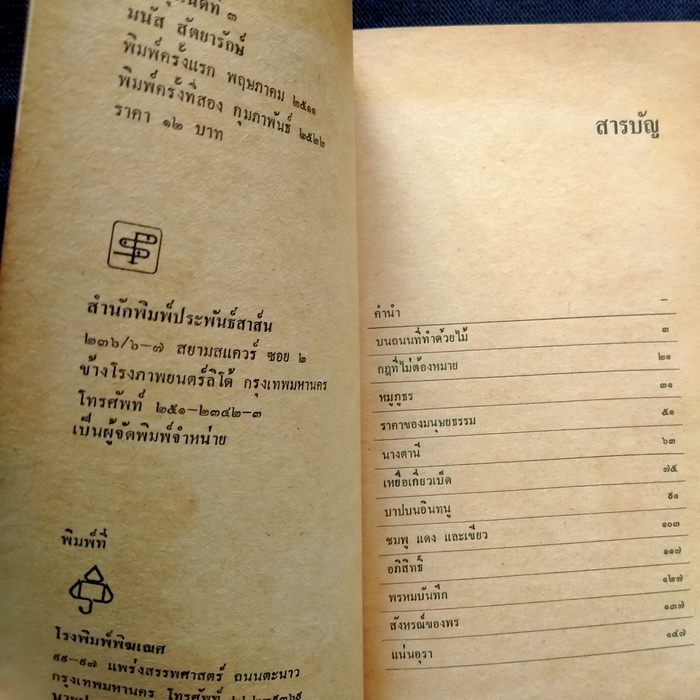 ที่ ๓
มนัส สัตยารักษ์
พิมพ์ครั้งแรก พฤษภาคม ๒๕๑๑
พิมพ์ครั้งที่สอง กุมภาพันธ์ ๒๕๒๒
ราคา ๑๒ บาท
สำนักพิมพ์ประพันธ์สาส์น
๒๓๖/๖-๗ สยามสแควร์ ซอย ๒
ข้างโรงภาพยนตร์ลิโด้ กรุงเทพมหานคร
โทรศัพท์ ๒๕๑-๒๓๔๒-๓
เป็นผู้จัดพิมพ์จำหน่าย
พิมพ์ที่
โรงพิมพ์พิฆเณศ
๙๙-๙๗ แพร่งสรรพศาสตร์ ถนนตะนาว
กรุงเทพมหานคร โทรศัพท์
สารบัญ
คำนำ –
บนถนนที่ทำด้วยไม้ ๓
กฎที่ไม่ต้องหมาย ๒๑
หมูภูธร ๓๑
ราคาของมนุษยธรรม ๕๑
นางตานี ๖๓
เหยื่อเกี่ยวเบ็ด ๗๕
บาปบนอินทนู ๙๑
ชมพู แดง และเขียว ๑๐๓
อภิสิทธิ์ ๑๑๗
พรหมบันทึก ๑๒๗
สังหรณ์ของพร ๑๓๗
แน่นอุรา ๑๔๗